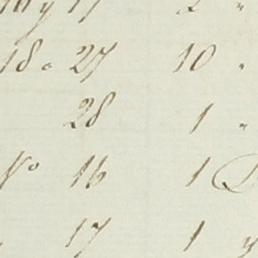 17 2 "
18. 27 10 "
28 1 "
No 16 1
17 1